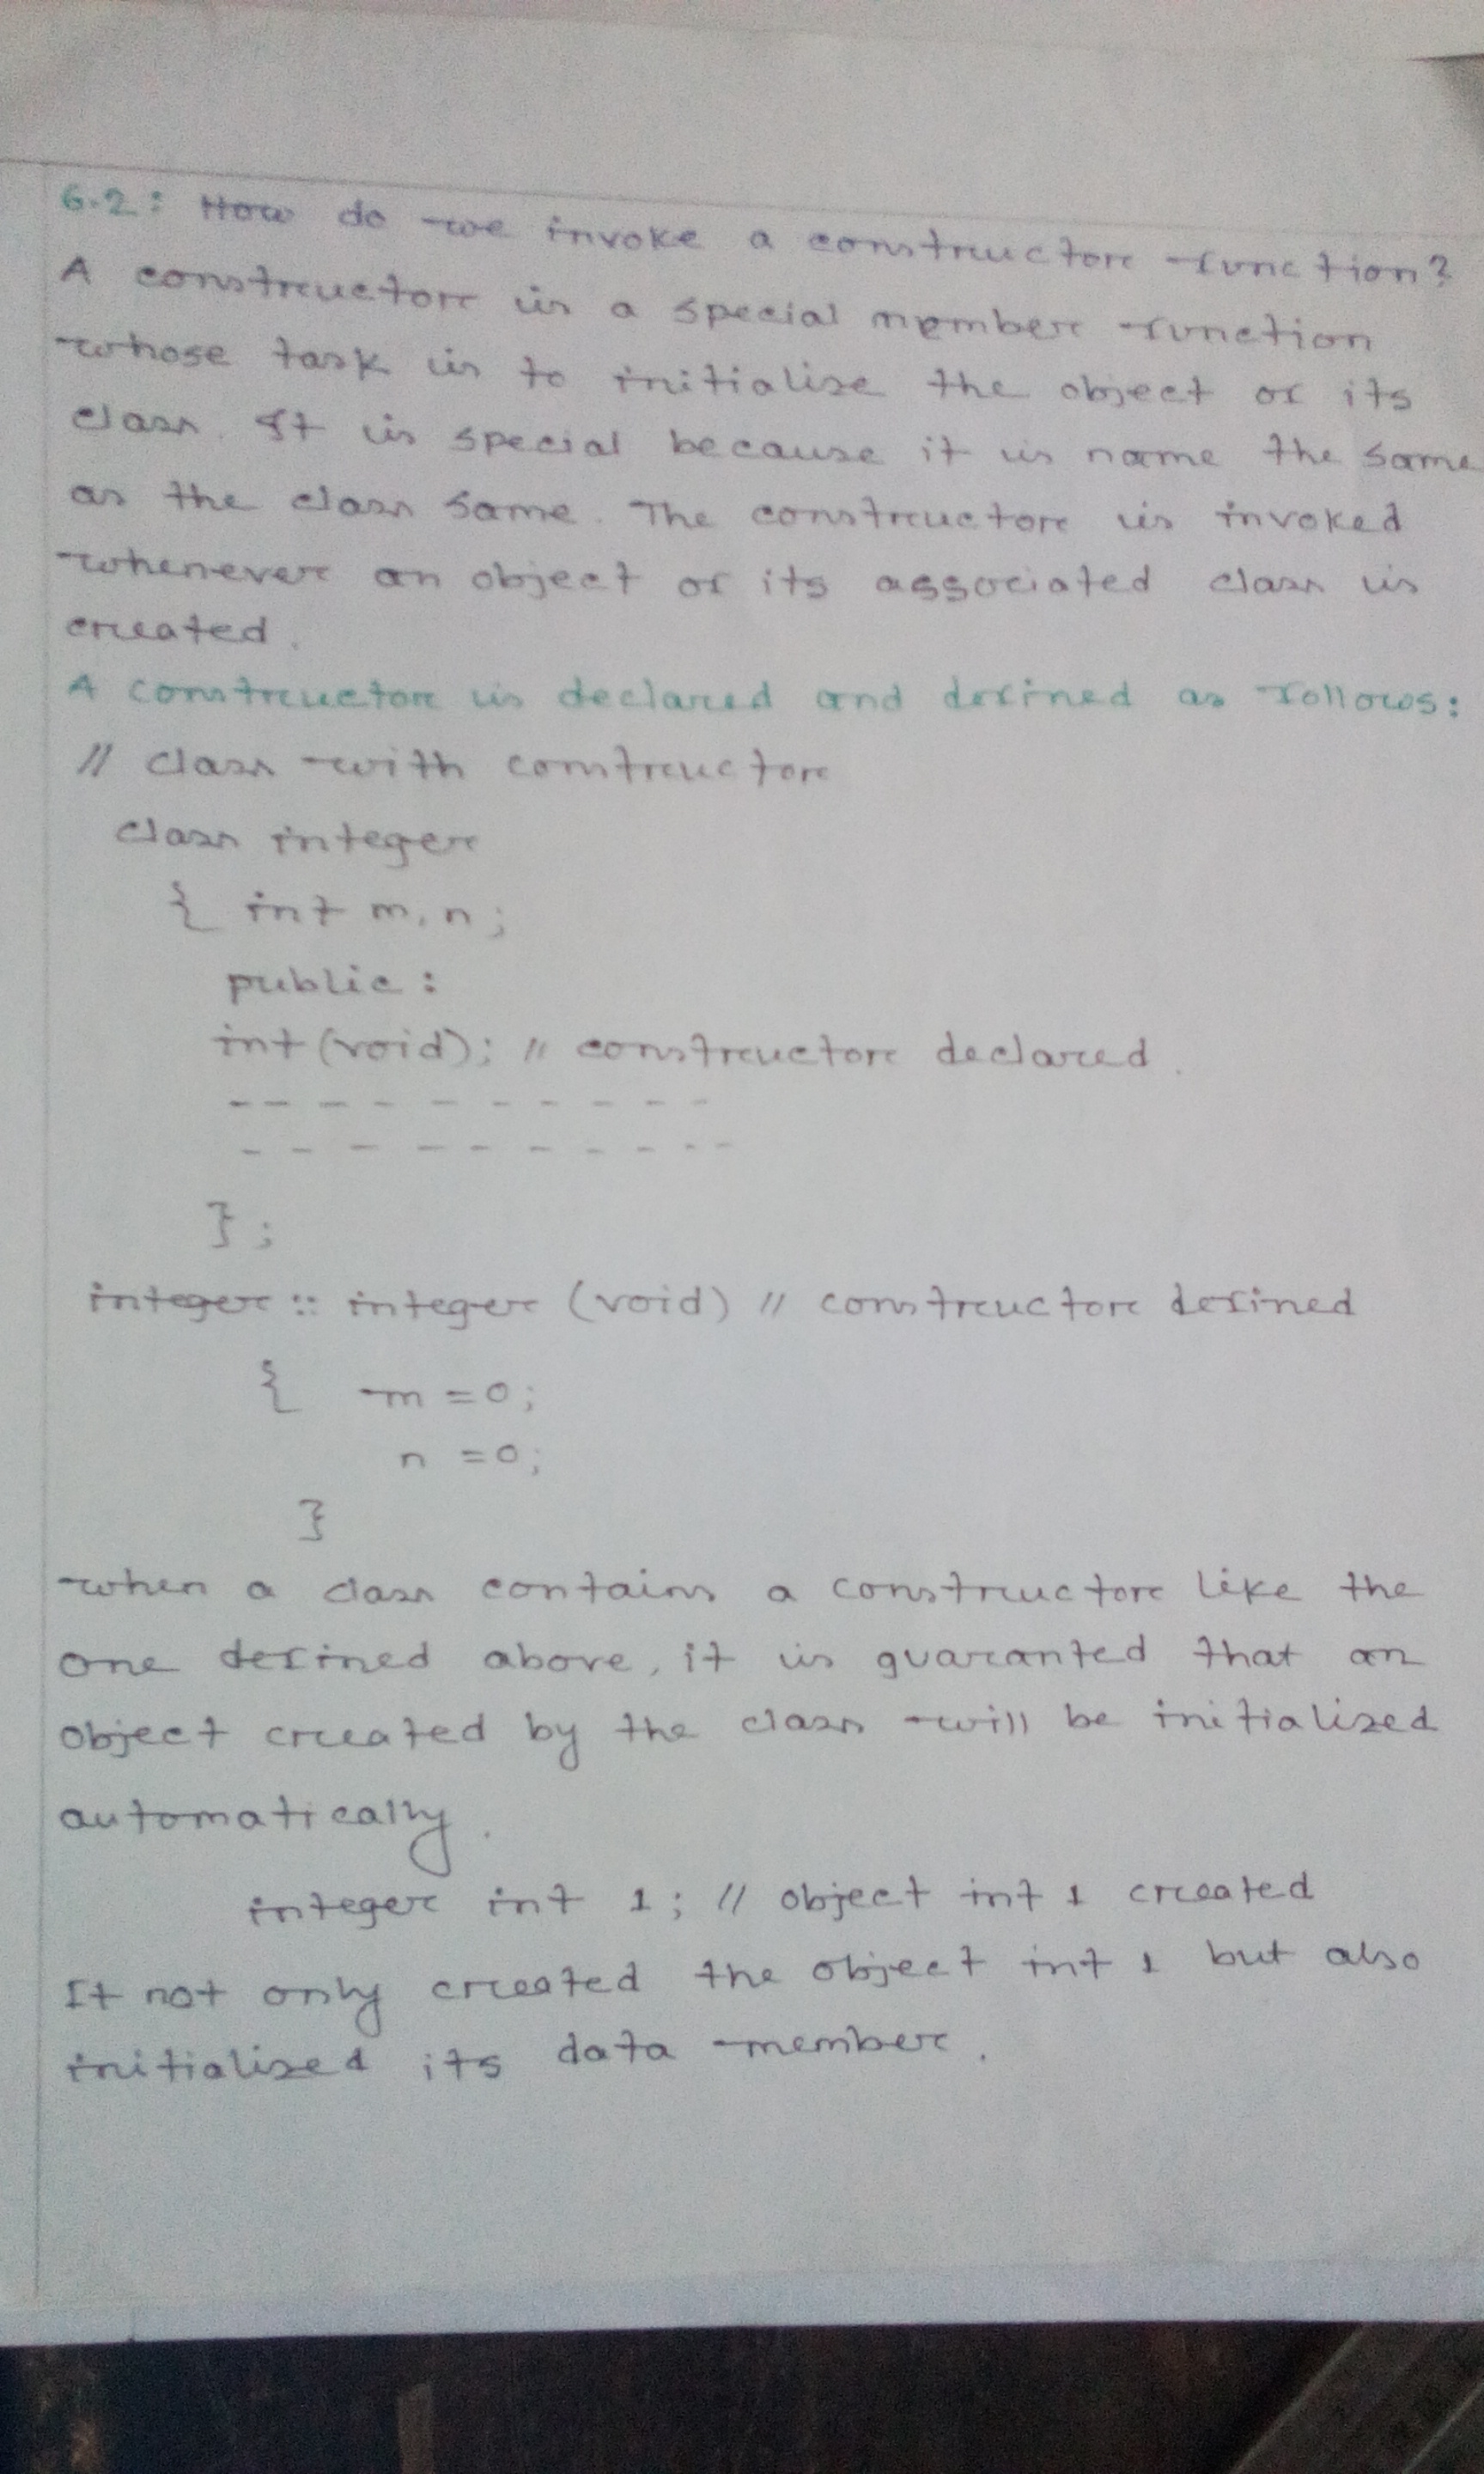 6.2: How do we invoke a constructor function?
A constructor is a special member function
whose task is to initialize the object of its
class. It is special because it is name the same
as the class same. The constructor is invoked
whenever an object of its associated class is
created.
A constructor is declared and defined as follows:
// class with constructor
class integer
{ int m, n;
public:
int (void); // constructor declared.
-- - - - - - - - -
- - - - - - - - - -
};
integer :: integer (void) // constructor defined
{ m = 0;
n = 0;
}
when a class contains a constructor like the
one defined above, it is guaranted that an
object created by the class will be initialized
automatically.
integer int 1; // object int 1 created
It not only created the object int 1 but also
initialized its data member.